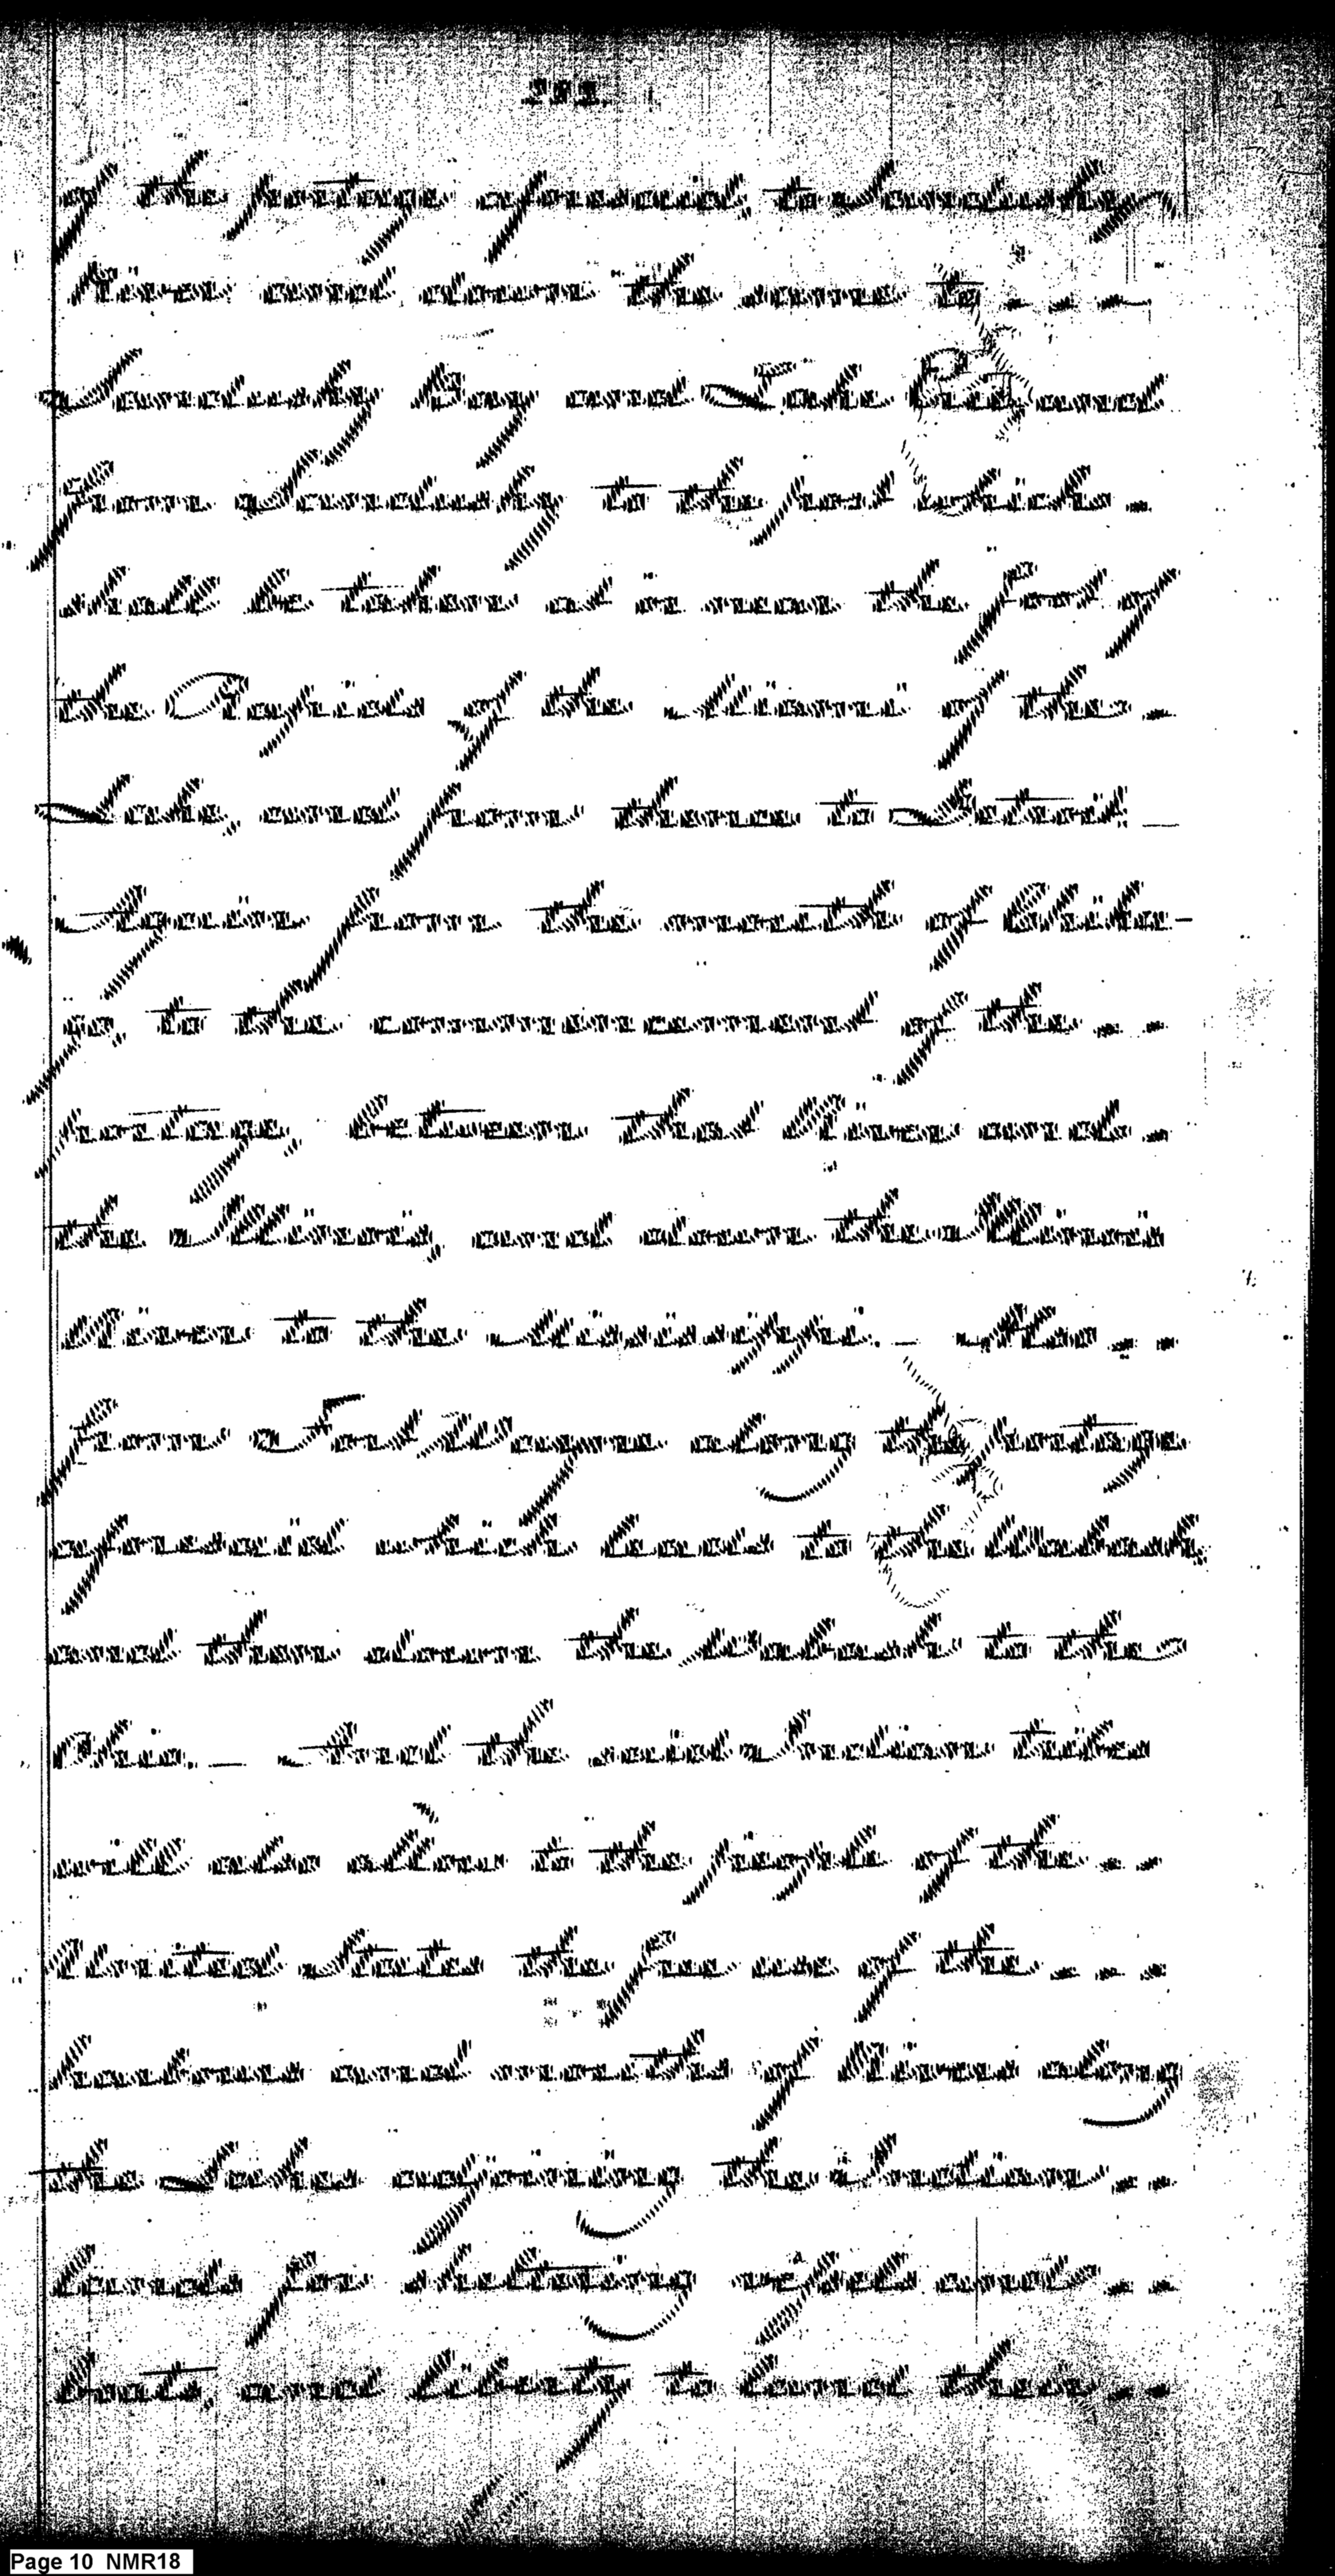 of the portage aforesaid, to Sandusky
River and down the same to - - -
Sandusky Bay and Lake Erie, and
from Sandusky to the post which -
shall be taken at or near the foot of
the Rapids of the Miami of the -
Lake, and from thence to Detroit -
Again from the mouth of Chika-
go, to the commencement of the - -
portage, between that River and -
the Illinois, and down the Illinois
River to the Mississippi. - Also - -
from Fort Wayne along the portage
aforesaid which leads to the Wabash,
and then down the Wabash to the
Ohio. - And the said Indian tribes
will also allow to the people of the - -
United States the free use of the - - -
harbors and mouths of Rivers along
the Lakes adjoining the Indian - -
lands for sheltering vessels and - -
boats, and liberty to land their - -
Page 10 NMR18